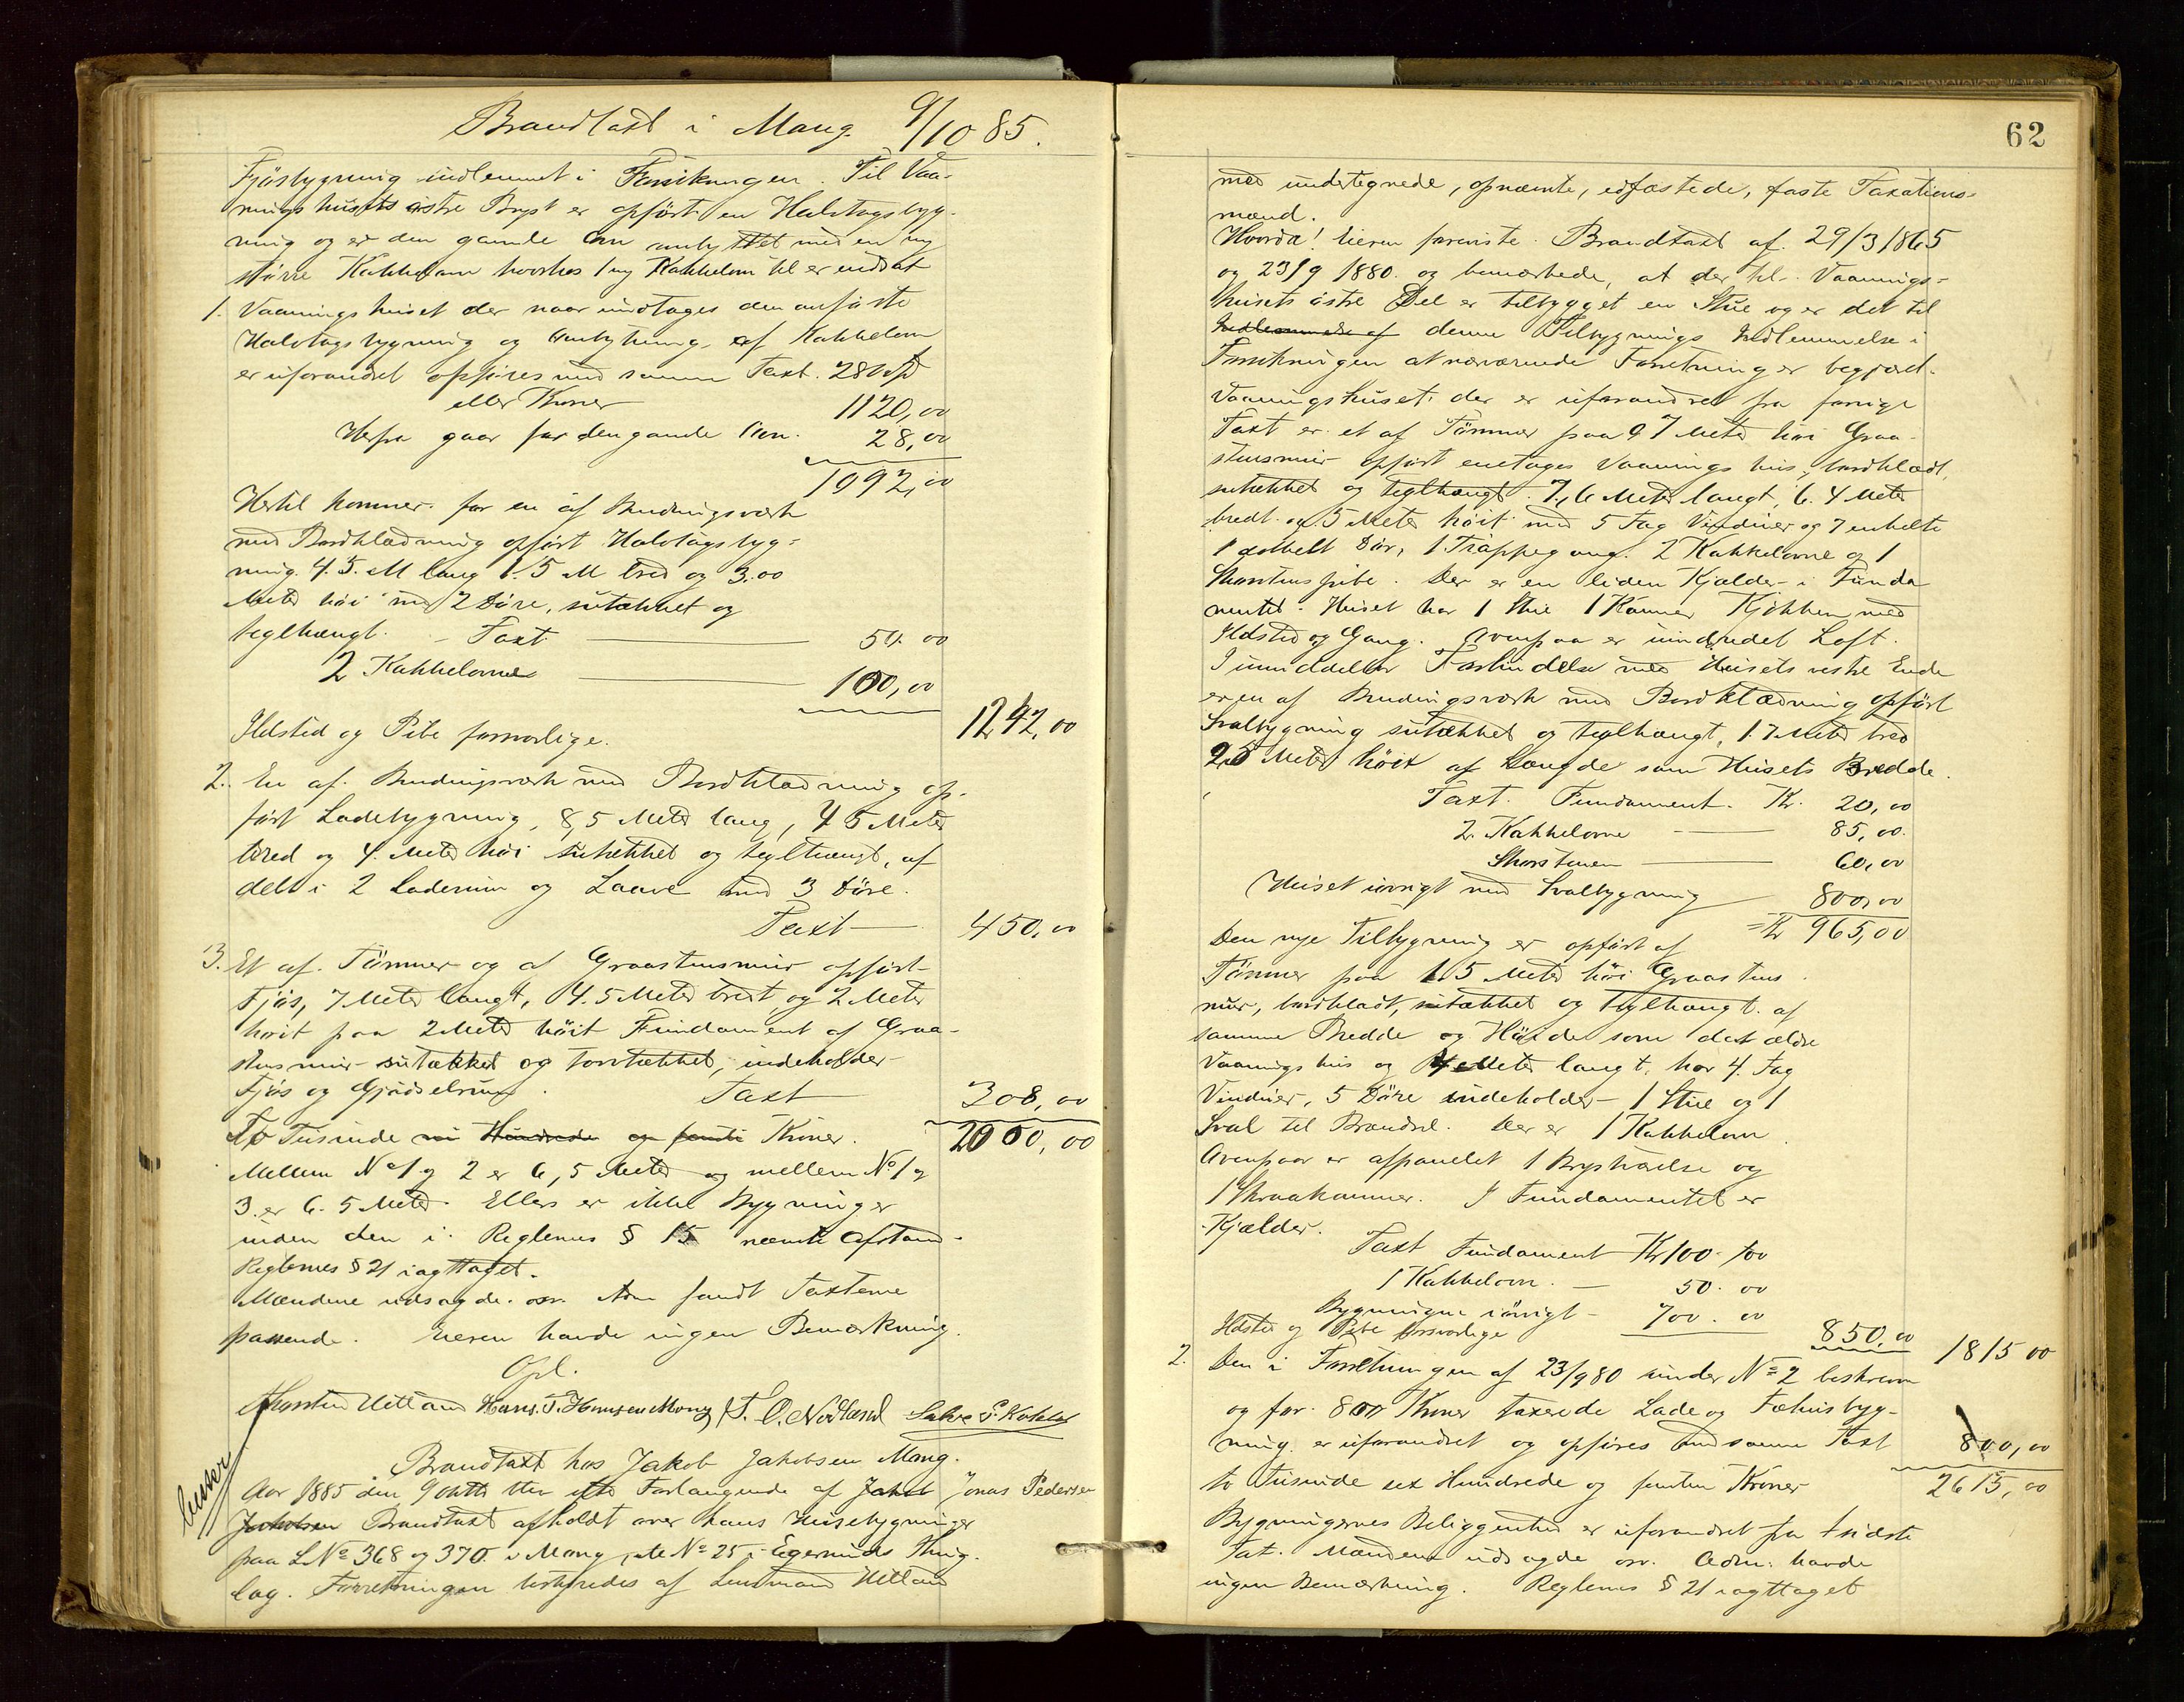 Brandtaxt i Mong 9/10 85.
Fjösbygning indlemmet i Forsikringen. Til Vaa-
ningshusets østre Bryst er opført en Halvtagsbyg-
ning og er den gamle Ovn ombyttet med en ny
større Kakkelovn hvorhos 1 ny Kakkelovn til er indsat
1. Vaaningshuset der naar undtages den anførte
Halvtagsbygning og Ombytning af Kakkelovn
er uforandret opføres med samme Taxt. 280 Spd
eller Kroner 1120,00
Herfra gaar for den gamle Ovn. 28,00
1092,00
Hertil kommer for en af Bindingsværk
med Bordklædning opført Halvtagsbyg-
ning. 4.5. M lang 1.5 M bred og 3.00
Meter høi med 2 Döre, sutækket og
teglhængt. - Taxt 50.00
2 Kakkelovne 100,00
1242,00
Ildsted og Pibe forsvarlige.
2. En af Bindingsværk med Bordklædning op-
ført Ladebygning, 8,5 Meter lang, 4 5 Meter
bred og 4. Meter høi sutækket og teglhængt, af
delt i 2 Laderum og Laave med 3 Döre.
Taxt 450,00
3. Et af Tömmer og af Graastensmur opført
Fjös, 7 Meter langt, 4.5 Meter bredt og 2 Meter
høit paa 2 Meter höit Fundament af Graa-
stensmur sutækket og torvtækket, indeholder
Fjös og Gjödselrum. Taxt 308,00
To Tusinde ni Hundrede og femti Kroner. 2000,00
Mellem No 1 og 2 er 6,5 Meter og mellem No 1 og
3. er 6.5 Meter. Ellers er ikke Bygninger
inden den i Reglernes § 15 nævnte Afstand.
Reglernes § 21 iagttaget.
Mændene udsagde osv. Adm fandt Taxterne
passende. Eieren havde ingen Bemærkning.
Opl.
Thorsten Hetland Hans. T. Hansen Mong T. O. Nödland
Brandtaxt hos Jakob Jakobsen Mong.
Aar 1885 den 9 Oktbr blev efter Forlangende af Jakob Jonas Pedersen
Jakobsen Brandtaxt afholdt over hans Husebygninger
paa L No 368 og 370. i Mong, No 25 i Egersunds Thing-
lag. Forretningen bestyredes af Lensmand Hetland
62
med undertegnede, opnævnte, edfæstede, faste Taxations-
mænd.
Hvorda! Eieren foreviste Brandtaxt af 29/3 1865
og 23/9 1880. og bemærkede, at der til Vaanings-
husets östre Del er tilbygget en Stue og er det til
Indlemmelse af denne Tilbygnings Indlemmelse i
Forsikringen at nærværende Forretning er begjæret.
Vaaningshuset. der er uforandret fra forrige
Taxt er et af Tömmer paa 0 7 Meter höi Graa-
stensmur opført enetages Vaaningshus, bordklædt,
sutækket og teglhængt. 7,6 Meter langt, 6.4 Meter
bredt og 5 Meter höit med 5 Fag Vinduer og 7 enkelte
1 dobbelt Dör, 1 Trappegang. 2 Kakkelovne og 1
Skorstenspibe. Der er en liden Kjælder i Funda
mentet. Huset har 1 Stue 1 Kammer Kjökken med
Ildsted og Gang. Ovenpaa er uindredet Loft.
I umiddelbar Forbindelse med Husets vestre Ende
er en af Bindingsværk med Bordklædning opført
Svalbygning sutækket og teglhængt, 1.7 Meter bred
2.5 Meter höit af Længde som Husets Bredde.
Taxt. Fundament. Kr. 20,00
2. Kakkelovne 85,00.
Skorstenen 60,00
Huset iövrigt med Svalbygning 800,00
= Kr 965,00
Den nye Tilbygning er opført af
Tömmer paa 1.5 Meter höi Graastens
mur, bordklædt, sutækket og teglhængt. af
samme Bredde og Höide som det ældre
Vaaningshus og 4 Meter langt. har 4. Fag
Vinduer, 5 Döre indeholder 1 Stue og 1
Sval til Brændsel. Der er 1 Kakkelovn.
Ovenpaa er afpanelet 1 Brystværelse og
1 Skraakammer. I Fundamentet er
Kjælder.
Taxt Fundament Kr 100.00
1 Kakkelovn. - 50.00
Bygningen iövrigt - 700.00
Ildsted og Pibe forsvarlige 850,00 1815 00
2. Den i Forretningen af 23/9 80 under No 2 beskrevne
og for 800 Kroner taxerede Lade og Fæhusbyg-
ning. er uforandret og opføres med samme Taxt 800,00
to Tusinde sex Hundrede og femten Kroner 2615,00
Bygningernes Beliggenhed er uforandret fra sidste
Tax. Mændene udsagde osv. Adm: havde
ingen Bemærkning. Reglernes § 21 iagttaget